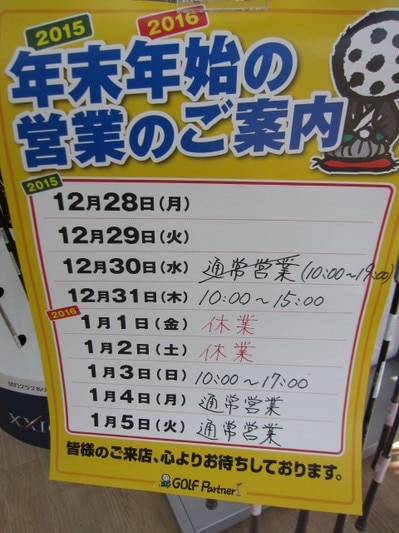 2015 2016
年末年始の
営業のご案内
2015
12月28日(月)
12月29日(火)
12月30日(水) 通常営業(10:00～19:00)
12月31日(木) 10:00～15:00
2016
1月1日(金) 休業
1月2日(土) 休業
1月3日(日) 10:00～17:00
1月4日(月) 通常営業
1月5日(火) 通常営業
皆様のご来店、心よりお待ちしております。
GOLF Partner
XXIO